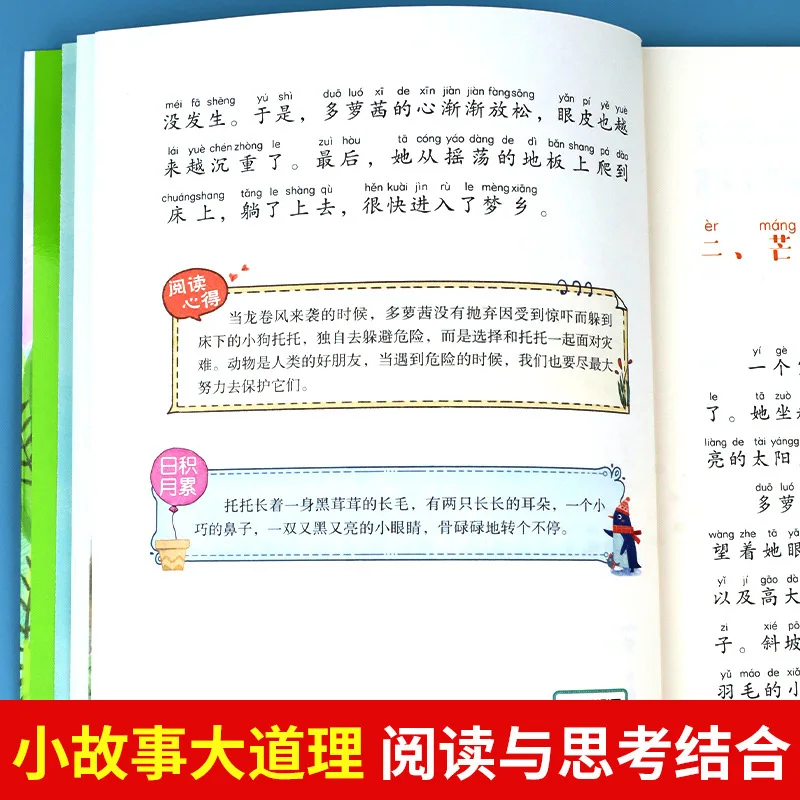 méi fā shēng yú shì duō luó xī de xīn jiàn jiàn fàng sōng yǎn pí yě yuè
没发生。于是，多萝茜的心渐渐放松，眼皮也越
lái yuè chén zhòng le zuì hòu tā cóng yáo dàng de dì bǎn shang pá dào
来越沉重了。最后，她从摇荡的地板上爬到
chuáng shang tǎng le shàng qù hěn kuài jìn rù le mèng xiāng
床上，躺了上去，很快进入了梦乡。
阅读
心得
当龙卷风来袭的时候，多萝茜没有抛弃因受到惊吓而躲到
床下的小狗托托，独自去躲避危险，而是选择和托托一起面对灾
难。动物是人类的好朋友，当遇到危险的时候，我们也要尽最大
努力去保护它们。
日积
月累
托托长着一身黑茸茸的长毛，有两只长长的耳朵，一个小
巧的鼻子，一双又黑又亮的小眼睛，骨碌碌地转个不停。
èr máng
二、芒
yí gè
一个
le tā zuò
了。她坐
liàng de tài yáng
亮的太阳
duō luó
多萝
wàng zhe tā
望着她眼
yǐ jí gāo dà
以及高大
zi xié pō
子。斜坡
yǔ máo de xiǎo
羽毛的小
小故事大道理 阅读与思考结合